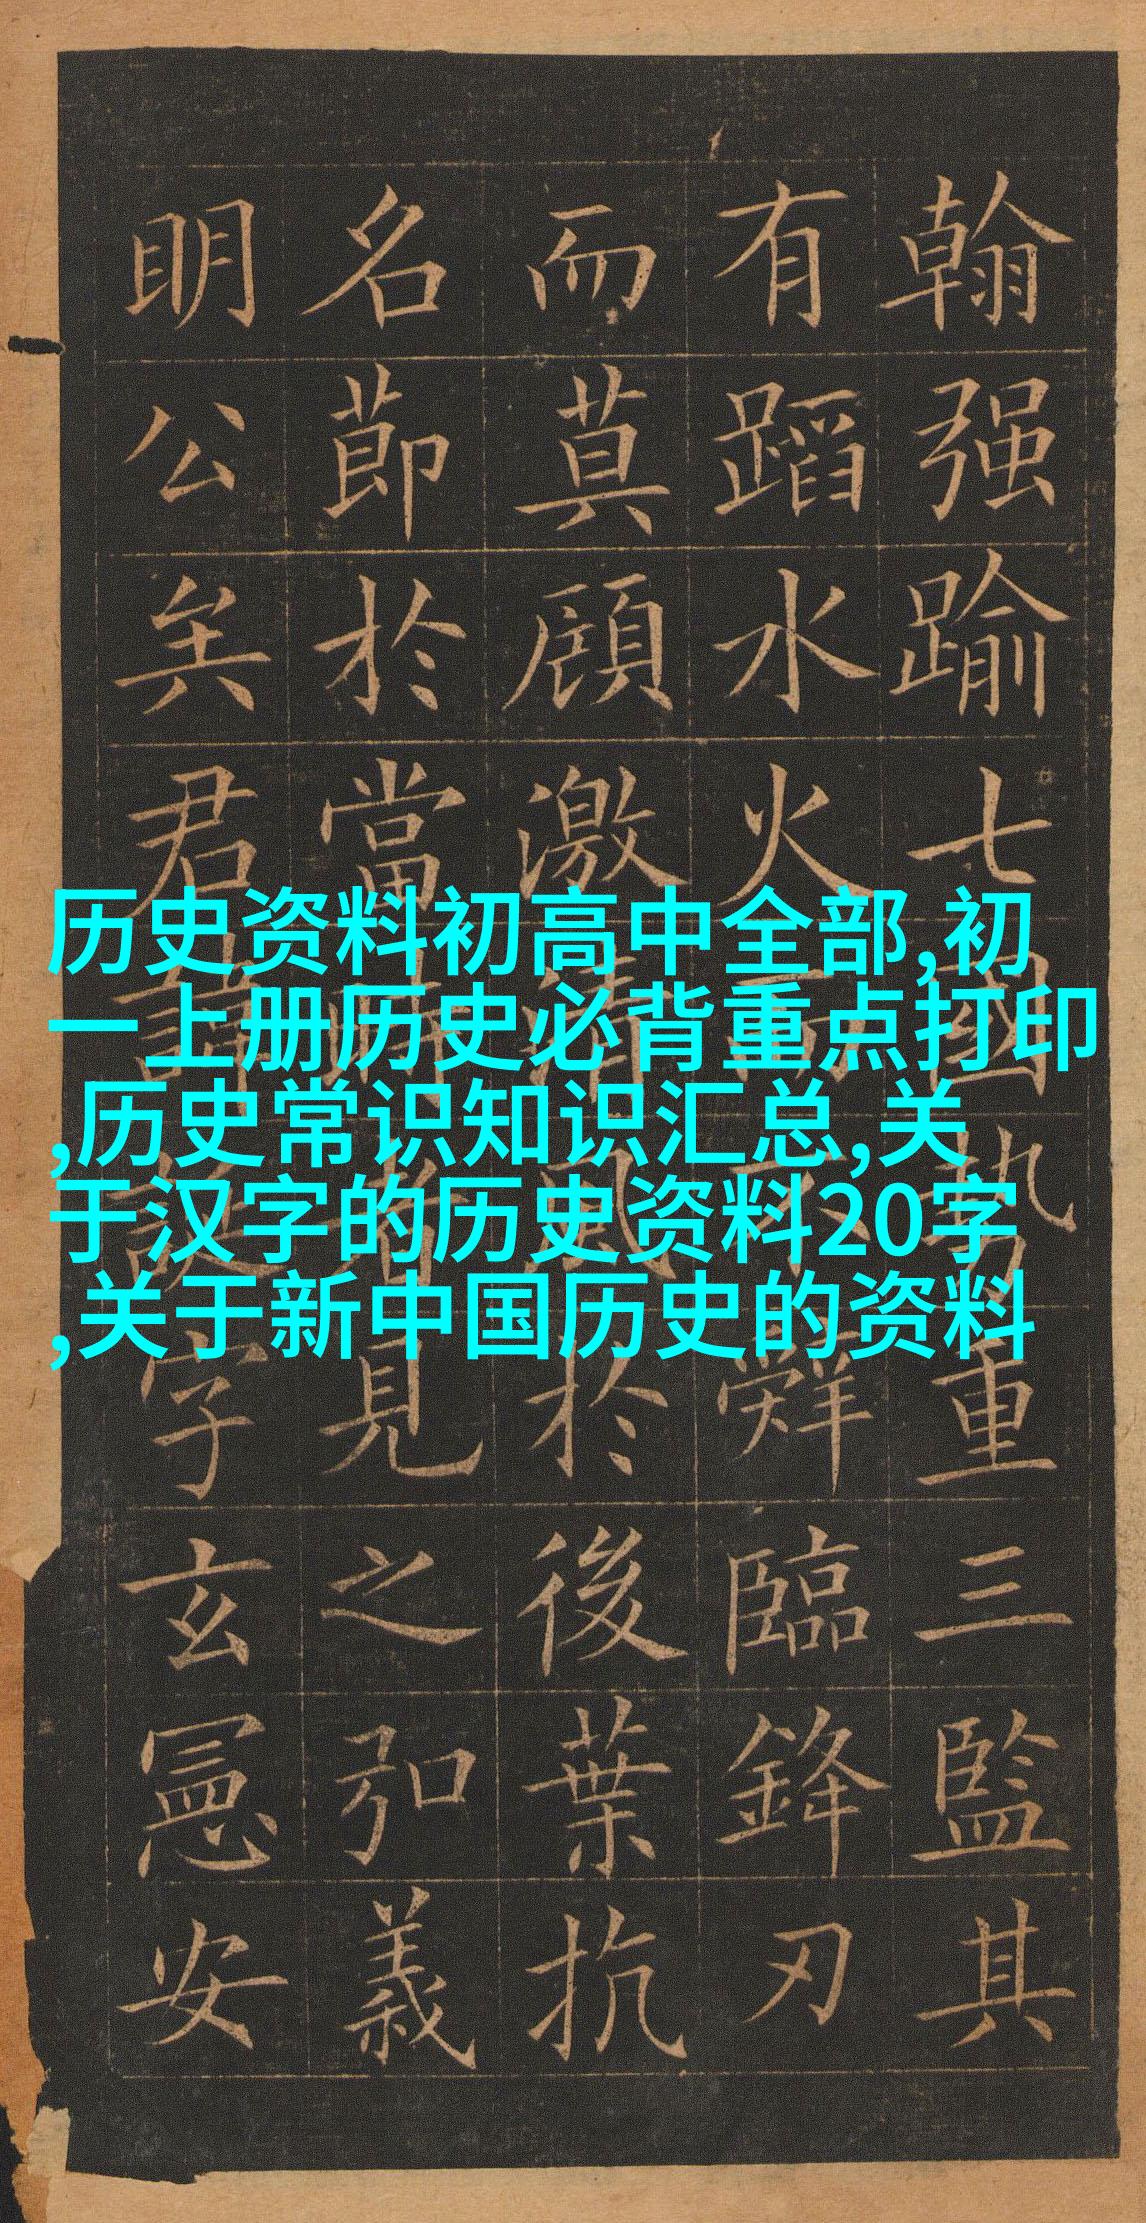 历史资料初高中全部,初
一上册历史必背重点打印
,历史常识知识汇总,关
于汉字的历史资料20字
,关于新中国历史的资料
翰强踰七國勢重三監其
有蹈水火而不辭臨鋒刃
而莫顧激清風於後葉抗
名節於當時者見之弘義
明公矣君諱誕字玄憲安